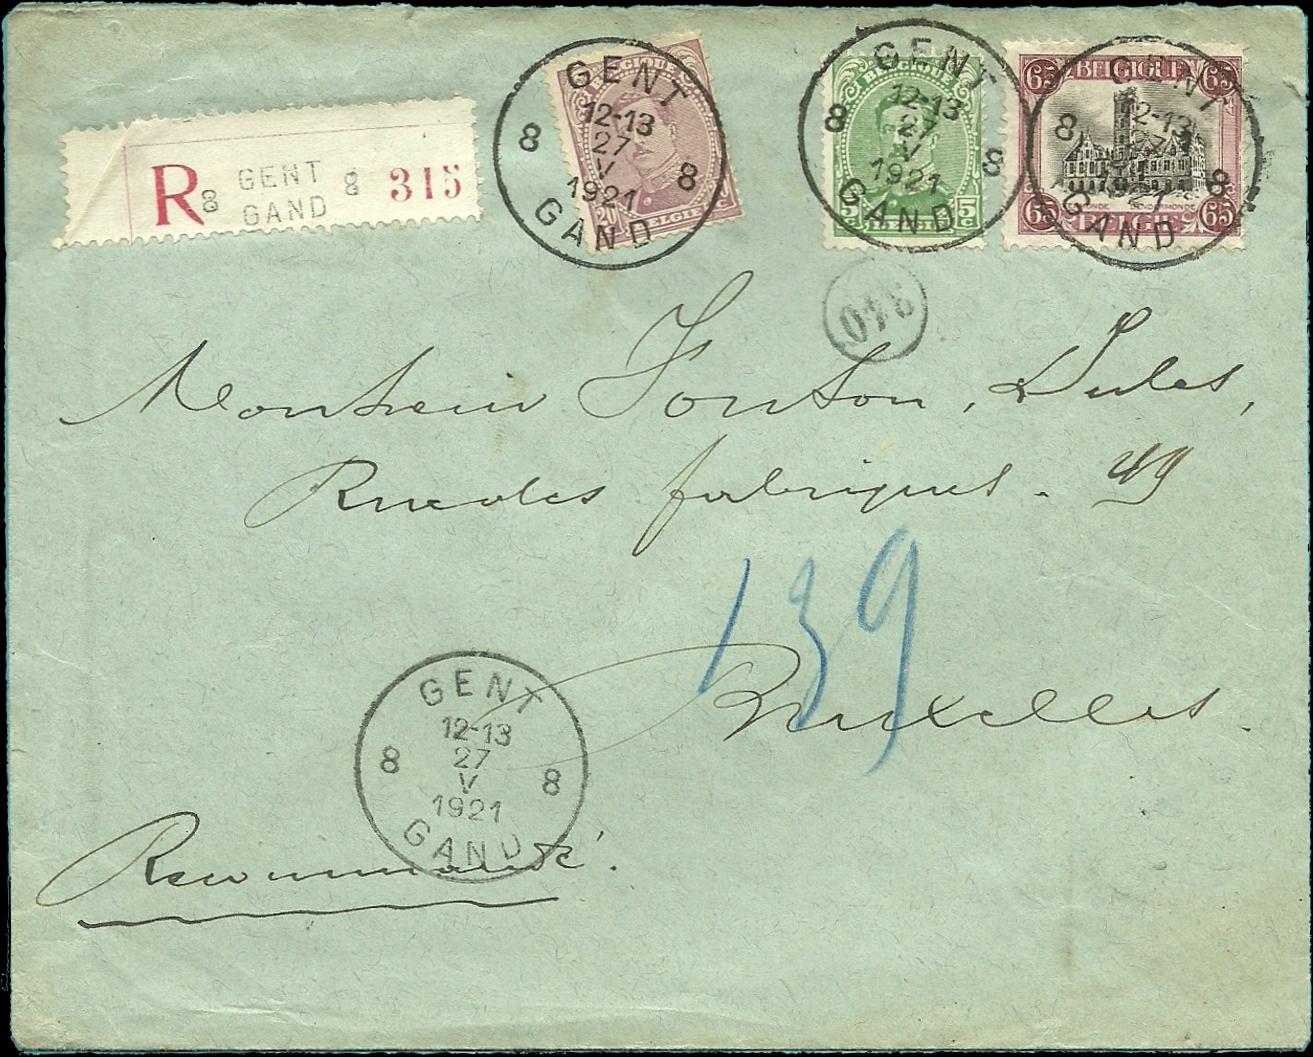 R 8 GENT 8 315
GAND
BELGIQUE
20 BELGIE
GENT
12-13
8 27 8
V
1921
GAND
BELGIQUE
5 5
GENT
12-13
8 27 8
V
1921
GAND
65 BELGIQUE 65
65 BELGIE 65
GENT
12-13
8 27 8
1921
GAND
340
Monsieur Fonson, Jules,
Rue des fabriques. 49
139
Bruxelles.
GENT
12-13
8 27 8
V
1921
GAND
Recommandé.